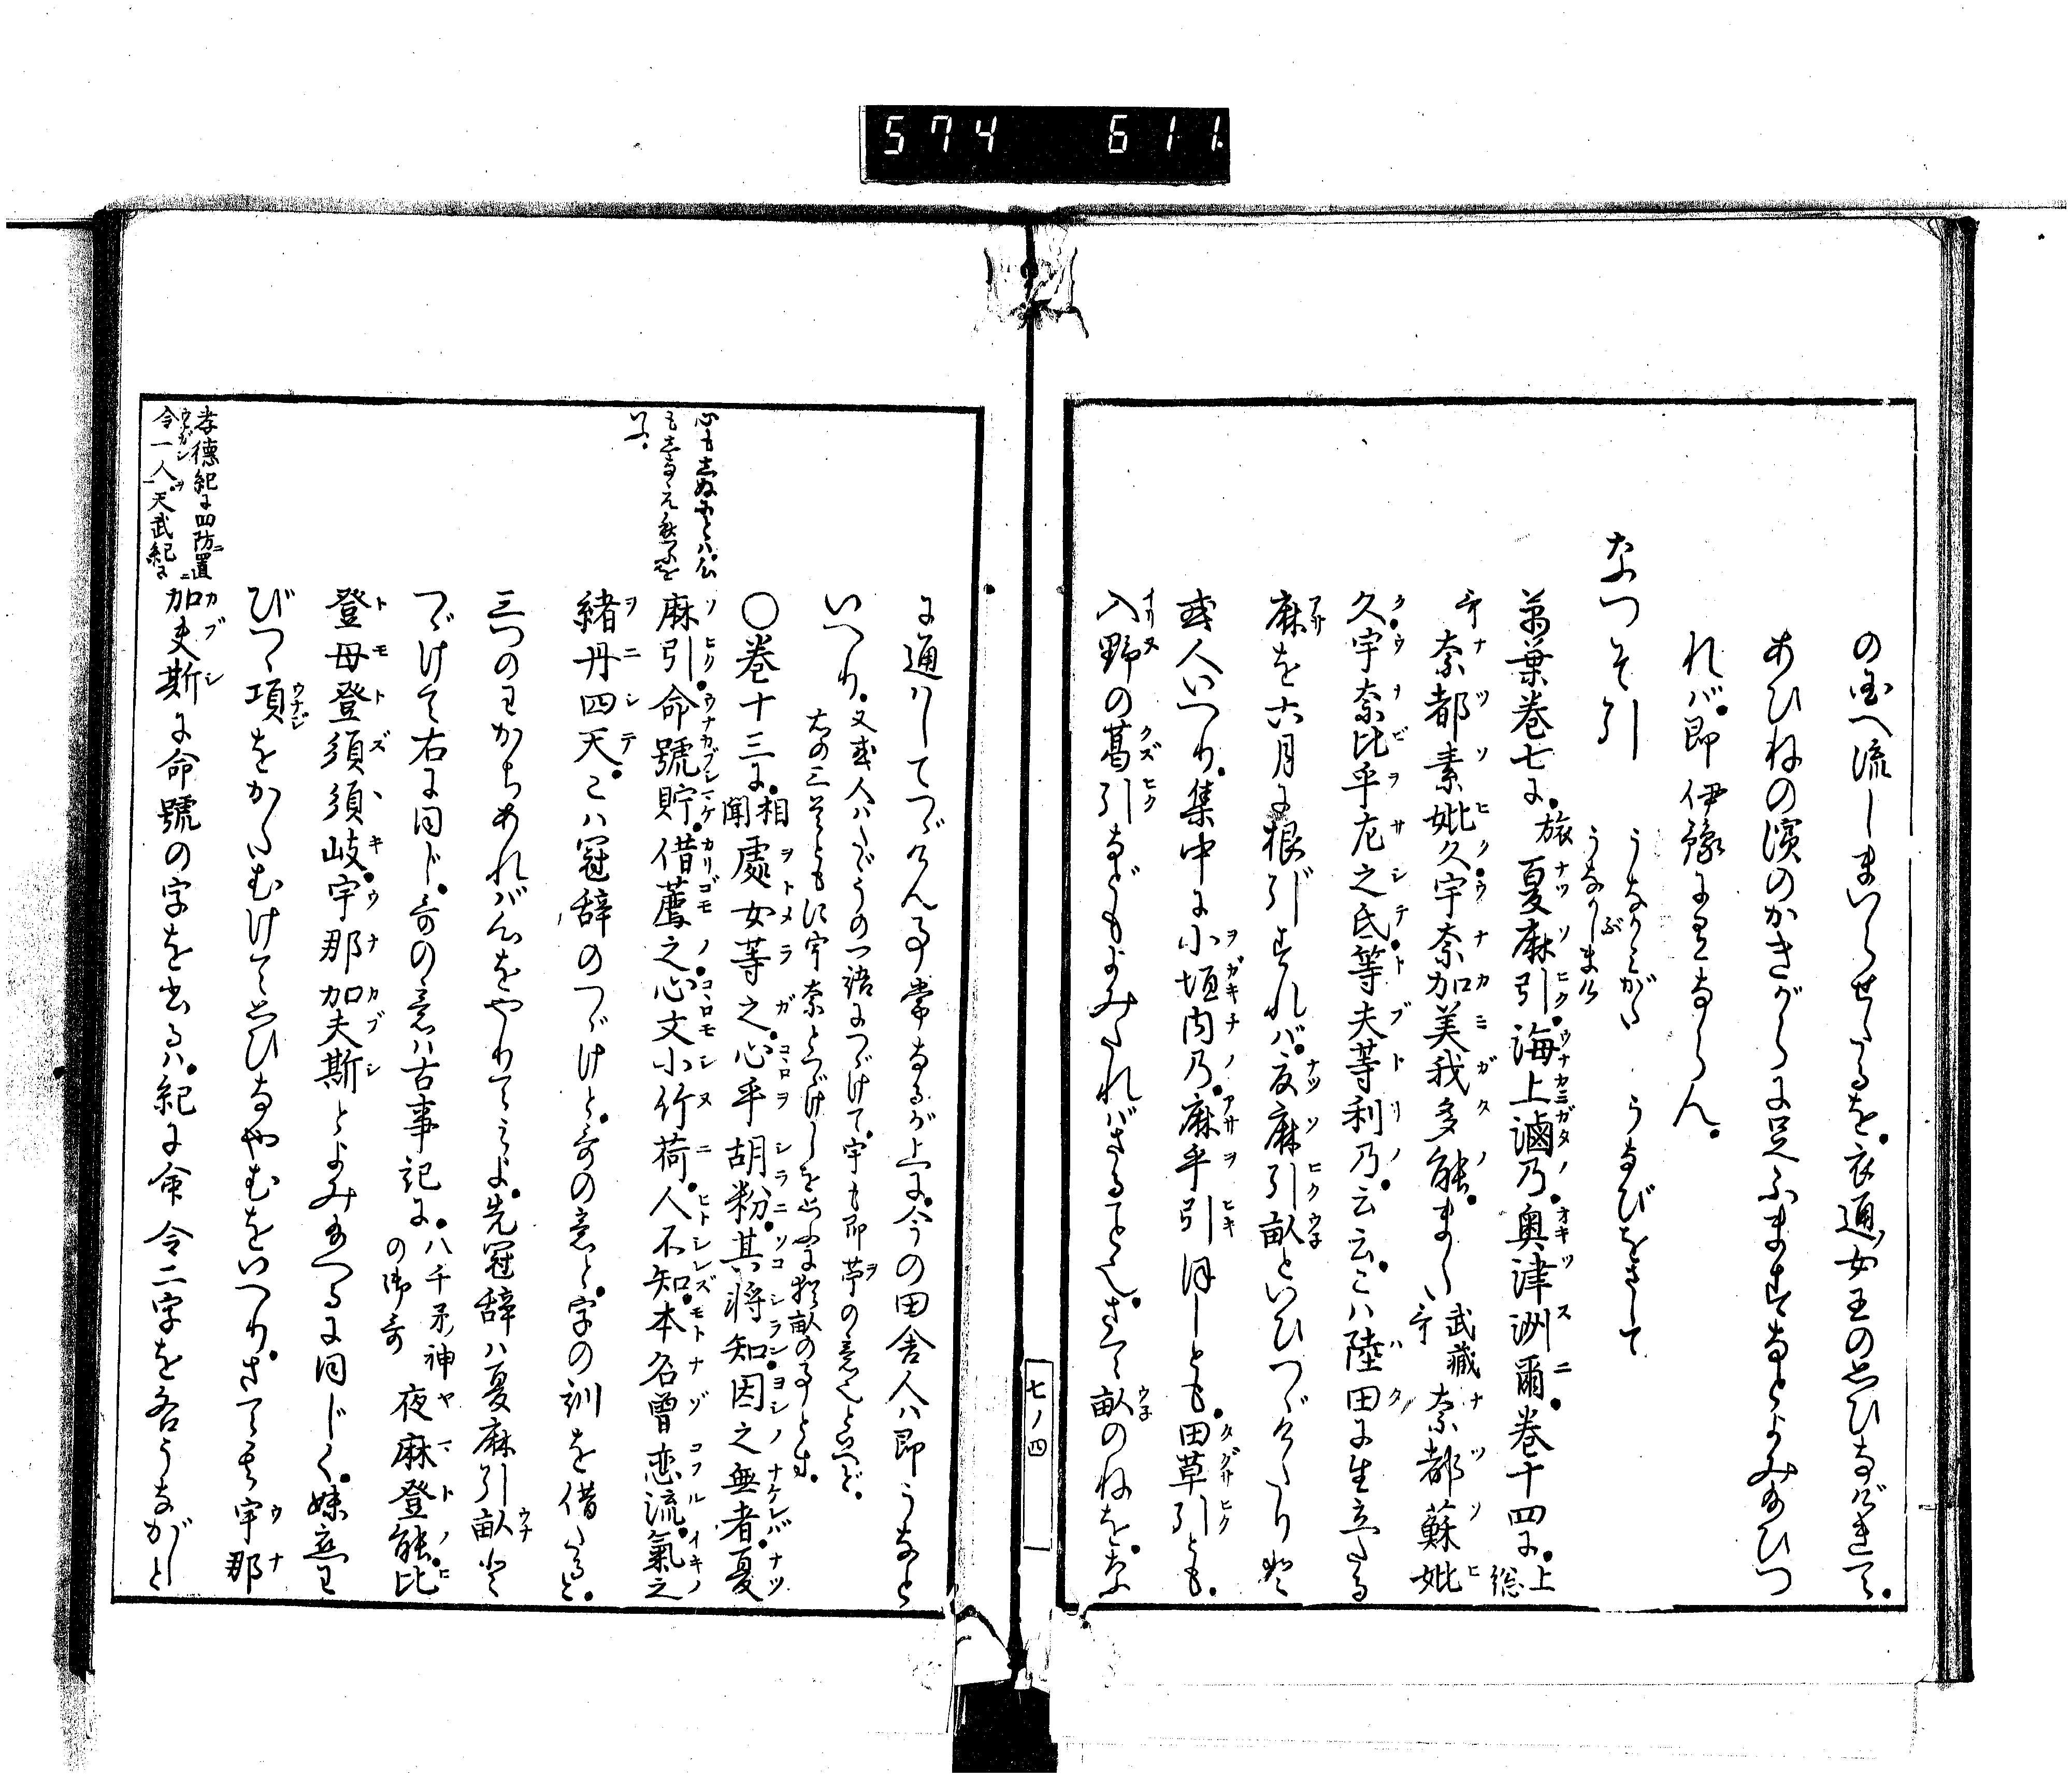 574 611.
の国へ流しまいらせたるを。衣通女王の思ひなげきて。
あひねの濱のかきがらに足ふますなとよみ給ひつ
れば。即伊豫にてなるらん。
なつそ引 うなかみがた うなびをさして
うなかぶしまけ
萬葉卷七に。旅夏麻引。海上滷乃。奥津洲爾。卷十四に。上総
哥奈都素妣久。宇奈加美我多能。また武藏哥奈都蘇妣
久。宇奈比乎左之氐。等夫等利乃。云云。こハ陸田に生立たる
麻を六月に根引すれバ。夏麻引畝といひつゞけたりと
或人いへり。集中に小垣内乃。麻乎引ほしとも。田草引とも。
入野の葛引などもよみたればさること也。さて畝のねを。な
七ノ四
に通ハしてつゞけん事常なるが上に。今の田舎人ハ即うなと
いへり。又或人ハたゞうの一語につゞけて。宇も即苧の意也といへど。
右の三首ともに宇奈とつゞけしを思ふに猶畝の事とす。
○卷十三に。相聞處女等之。心乎胡粉。其將知因之無者。夏
麻引。命號貯。借薦之。心文小竹荷。人不知。本名曽恋流。氣之
緒丹四天。こハ冠辞のつゞけと。哥の意と。字の訓を借たると。
三つのわかちあれば心をやりてみよ。先冠辞ハ夏麻引畝と
つゞけて右に同じ。哥の意ハ古事記に。八千矛神の御哥夜麻登能。比
登母登須須岐。宇那加夫斯とよみ給へるに同じく。妹恋わ
びつゝ項をかたむけて思ひなやむをいへり。さて其宇那
加夫斯に命號の字を書るハ。紀に命令二字を各うながしと
心もしぬにとハ。心もしなえうらぶるをいふ。
孝徳紀に四防置
令一人。天武紀に